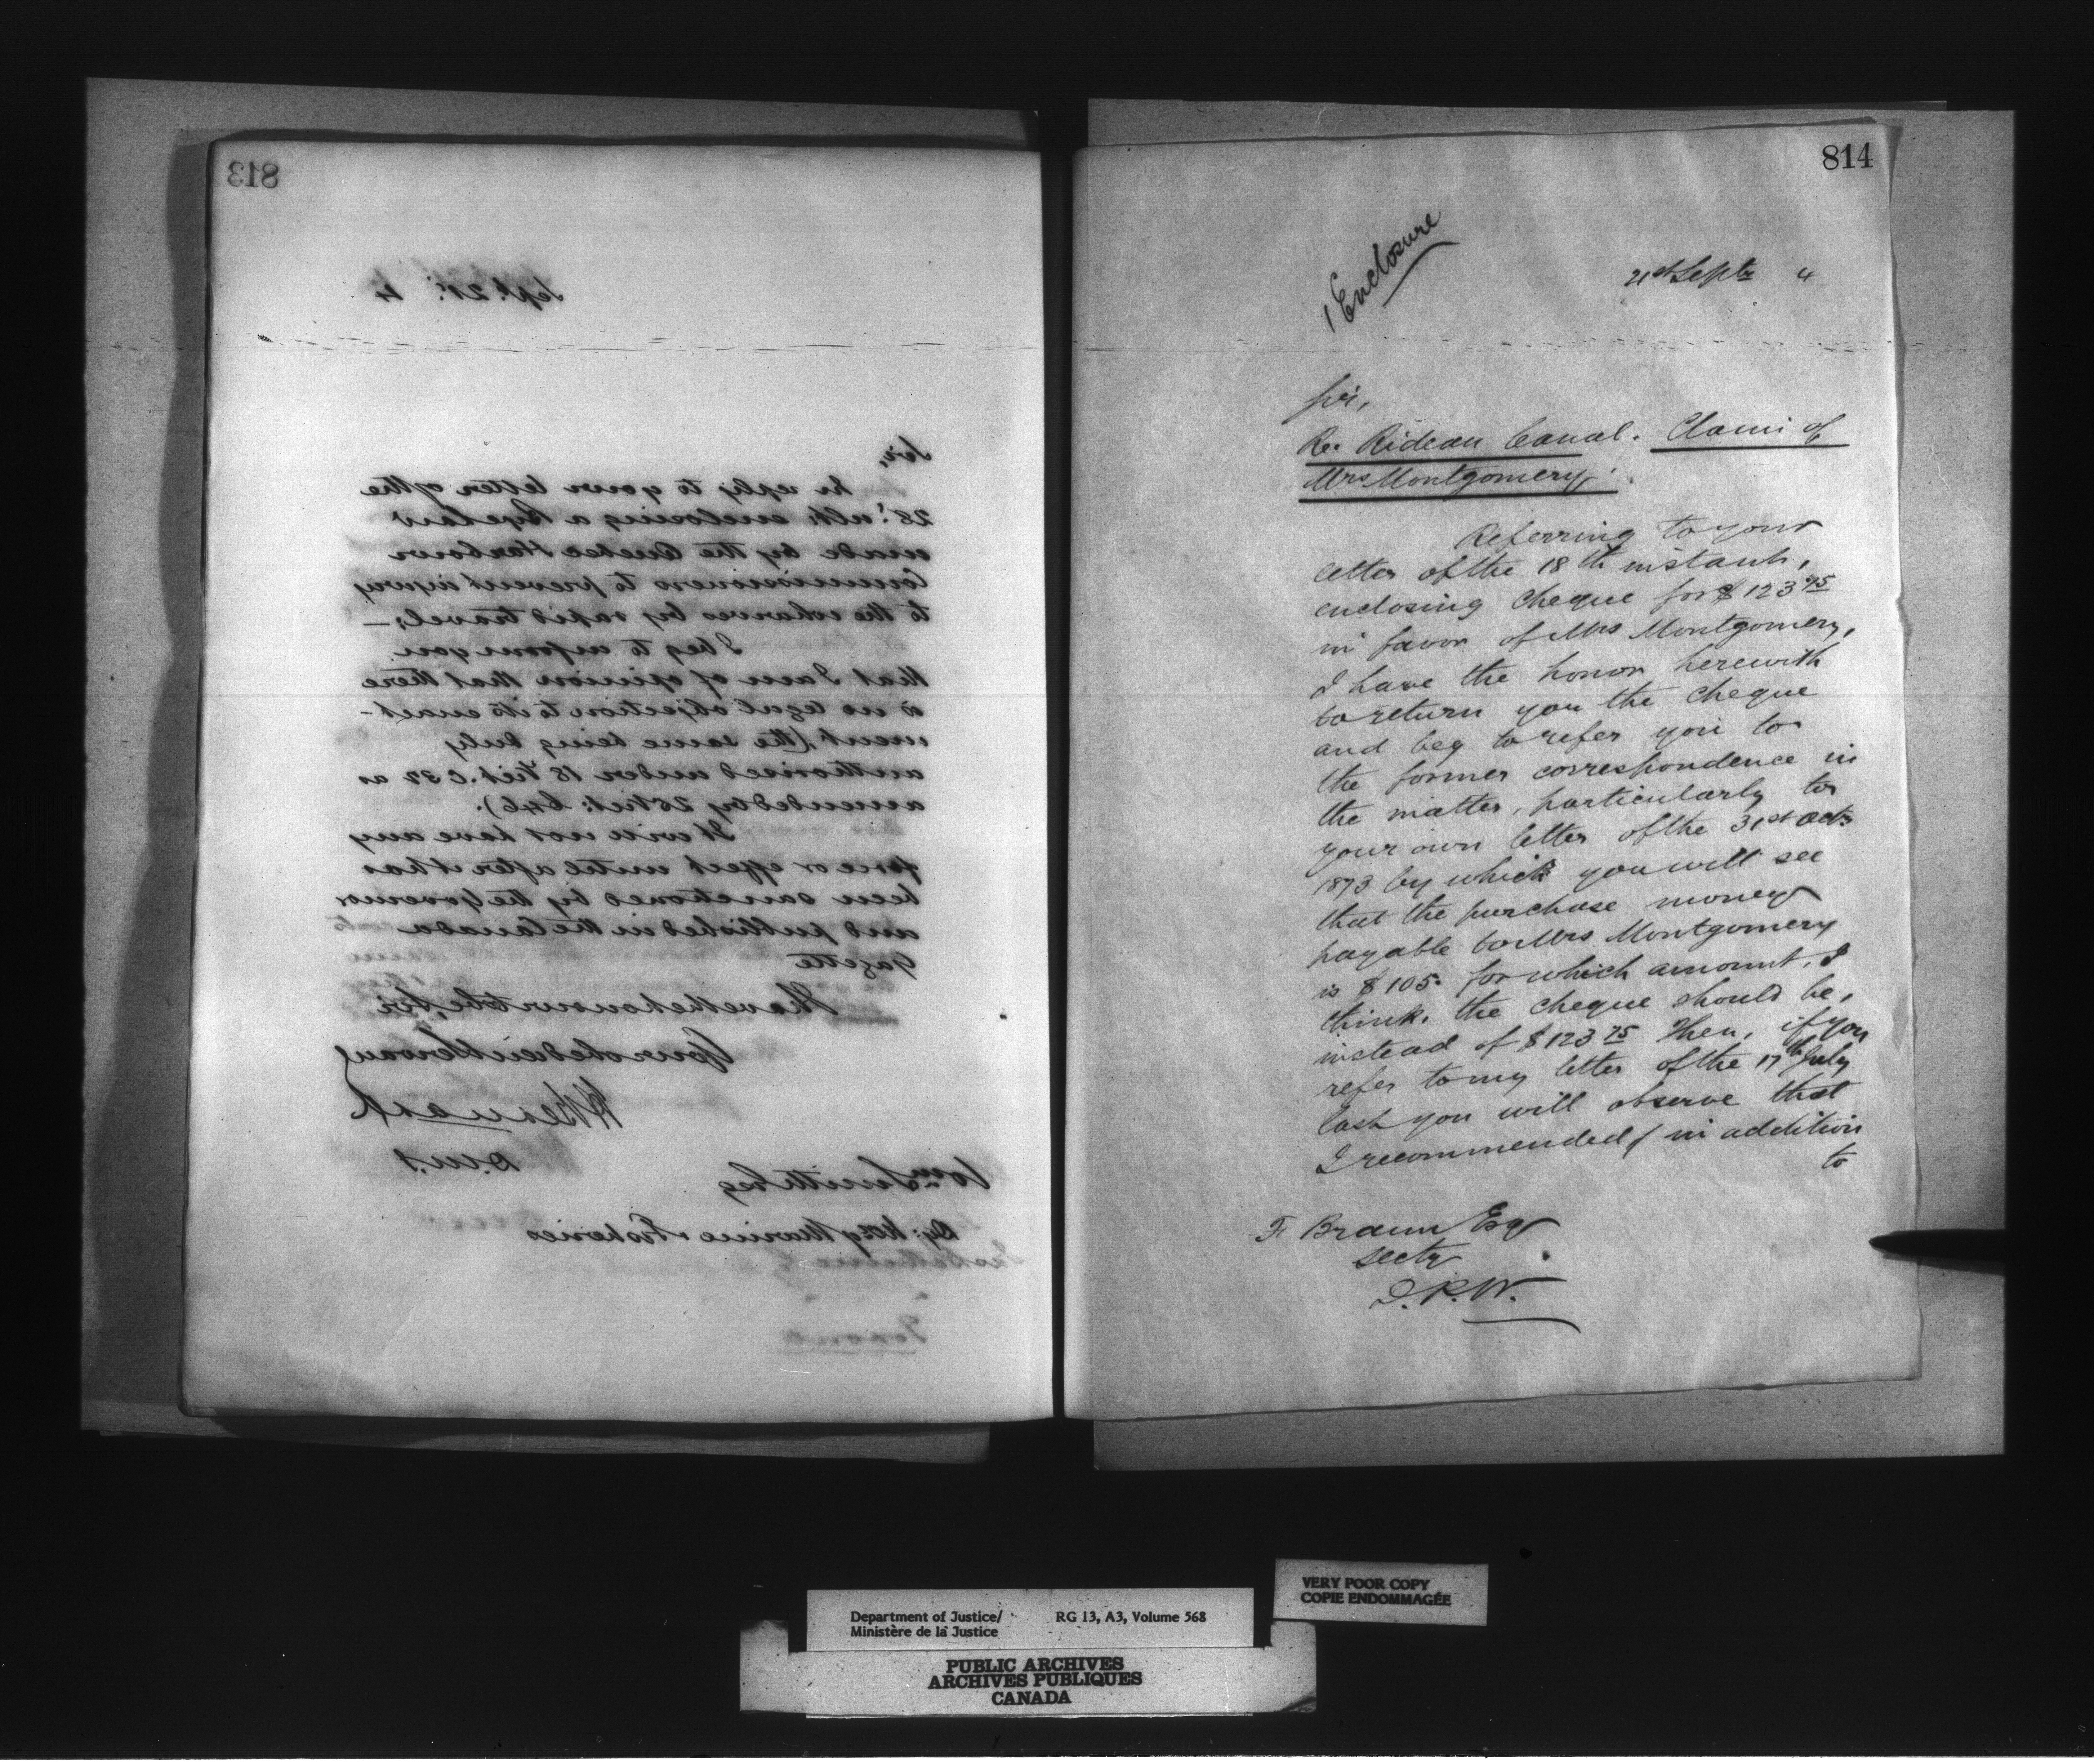 813
Sept. 21st 4
Sir,
In reply to your letter of the
28th ult: enclosing a Bye law
made by the Quebec Harbour
Commissioners to prevent injury
to the wharves by rapid travel; —
I beg to inform you
that I am of opinion that there
is no legal objection to its enact-
ment, (the same being duly
authorised under 18 Vict. C 32 as
amended by 25 Vict: C46).
It will not have any
force or effect until after it has
been sanctioned by the Governor
and published in the Canada
Gazette
I have the honour to be, Sir
Your obedient Servant
H Bernard
D.M.J
Wm Smith Esq
Dy: Marine & Fisheries
814
1 Enclosure
21st Septr 4
Sir,
Re. Rideau Canal. Claim of
Mrs Montgomery.
Referring to your
letter of the 18th instant,
enclosing cheque for $123 75
in favor of Mrs Montgomery,
I have the honor herewith
to return you the cheque
and beg to refer you to
the former correspondence in
the matter, particularly to
your own letter of the 31st Octr
1873 by which you will see
that the purchase money
payable to Mrs Montgomery
is $105. for which amount, I
think, the cheque should be,
instead of $123 75 Then, if you
refer to my letter of the 17th July
last you will observe that
I recommended, in addition
to
F Braun Esq
Secty
D.P.W.
Department of Justice/ RG 13, A3, Volume 568
Ministère de la Justice
VERY POOR COPY
COPIE ENDOMMAGÉE
PUBLIC ARCHIVES
ARCHIVES PUBLIQUES
CANADA